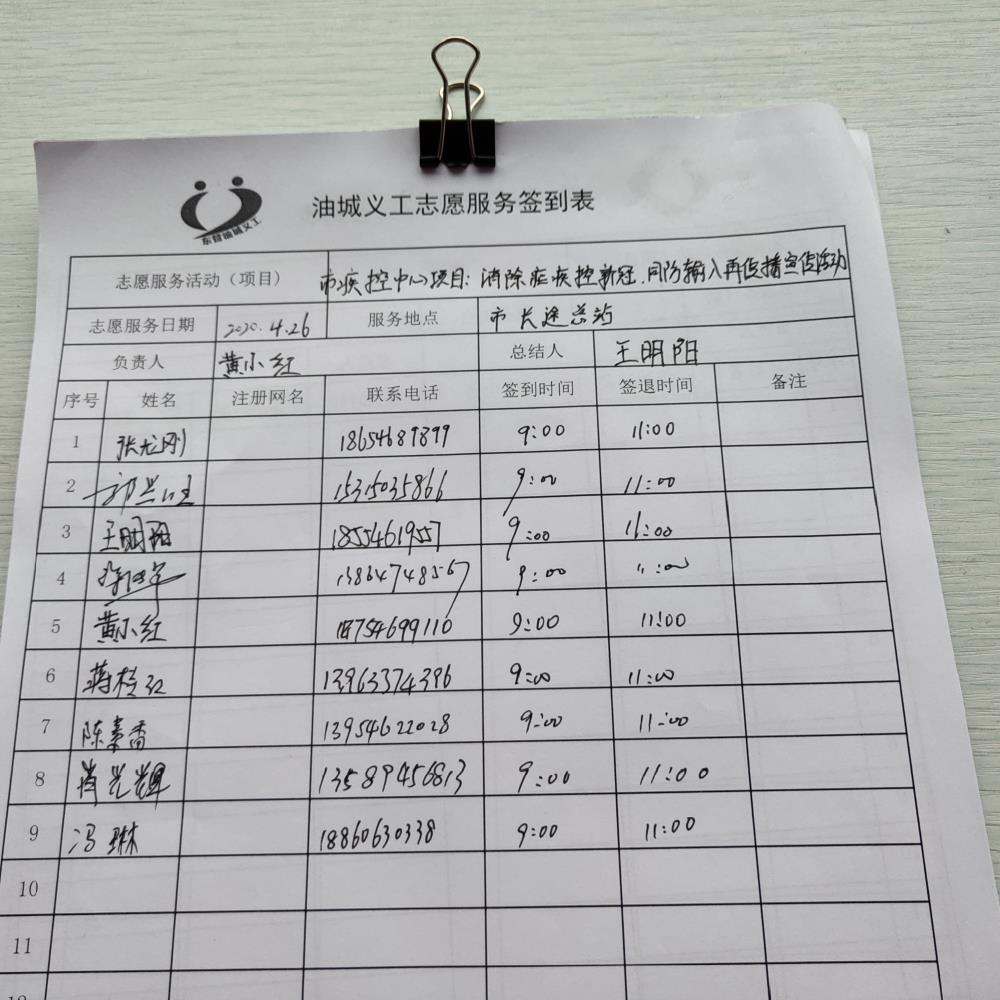 油城义工志愿服务签到表
东营油城义工
志愿服务活动（项目） 市疾控中心项目：消除疟疾控新冠，同防输入再传播宣传活动
志愿服务日期 2020.4.26 服务地点 市长途总站
负责人 黄小红 总结人 王明阳
序号 姓名 注册网名 联系电话 签到时间 签退时间 备注
1 张龙刚 18654689899 9:00 11:00
2 15315035866 9:00 11:00
3 王明阳 18554619557 9:00 11:00
4 13864748567 9:00 11:00
5 黄小红 18754699110 9:00 11:00
6 蒋桂红 13963374396 9:00 11:00
7 陈素香 13954622028 9:00 11:00
8 肖光辉 13589456813 9:00 11:00
9 冯琳 18860630338 9:00 11:00
10
11